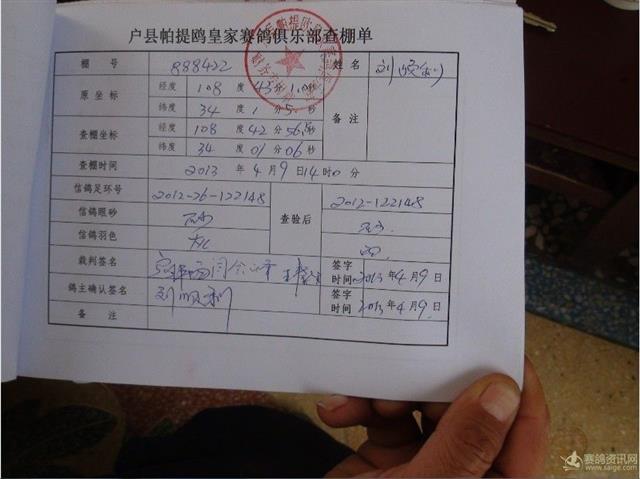 户县帕提鸥皇家赛鸽俱乐部查棚单
棚 号 888422 姓 名 刘顺利
原 坐 标 经度 108 度 43 分 1.0 秒 备 注
纬度 34 度 1 分 5. 秒
查棚坐标 经度 108 度 42 分 56. 秒
纬度 34 度 01 分 06 秒
查棚时间 2013 年 4 月 9 日 14 时 0 分
信鸽足环号 2012-26-122148 查验后 2012-122148
信鸽眼砂
信鸽羽色
裁判签名 签字时间 2013 年 4 月 9 日
鸽主确认签名 刘顺利 签字时间 2013 年 4 月 9 日
备 注
赛鸽资讯网
www.saige.com